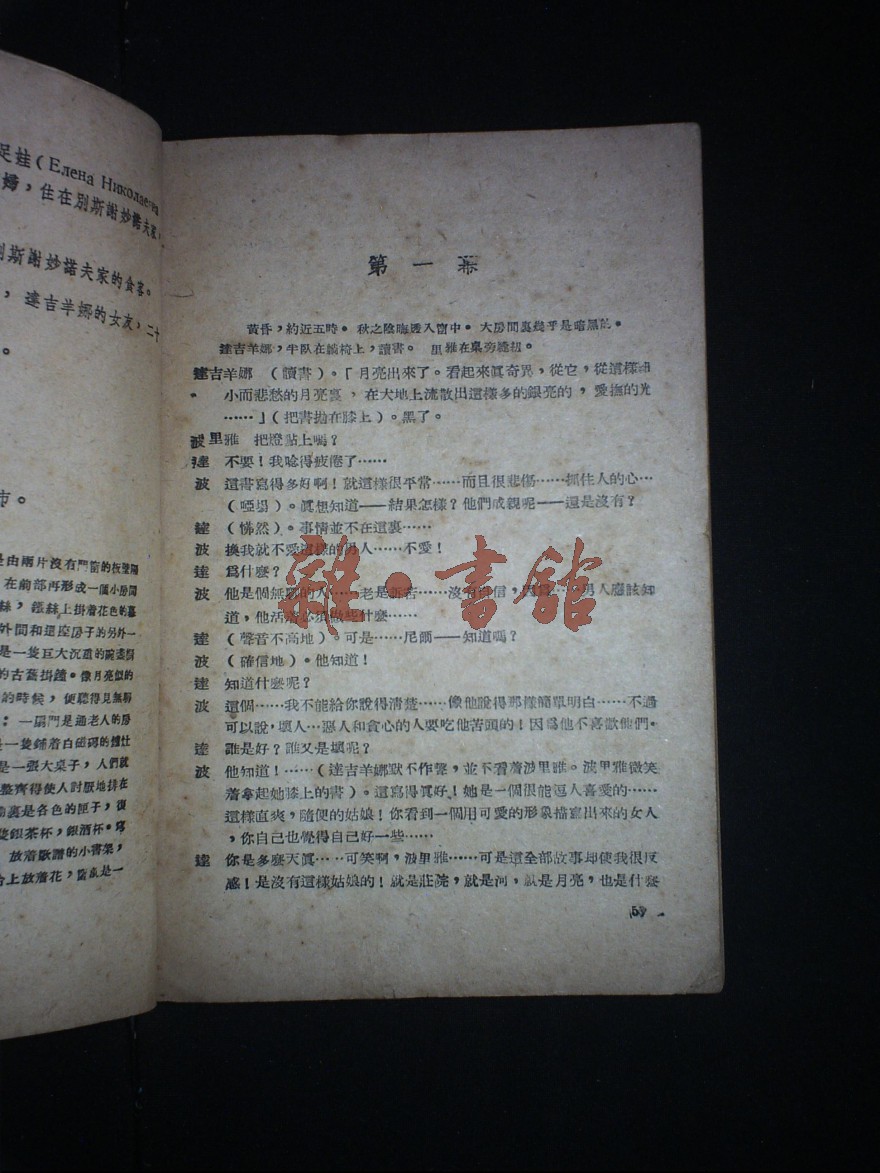 足娃（Елена Николаевна
婦，住在別斯謝妙諾夫家
別斯謝妙諾夫家的食客。
，達吉羊娜的女友，二十
。
市。
是由兩片沒有門窗的板壁隔
在前部再形成一個小房間
絲，鐵絲上掛着花色的幕
外間和這座房子的另外一
是一隻巨大沉重的碗盞櫥
的古舊掛鐘。像月亮似的
的時候，便聽得見無聊
：一扇門是通老人的房
是一隻鋪着白磁磚的爐灶
是一張大桌子，人們就
整齊得使人討厭地排在
裏是各色的匣子，復
隻銀茶杯，銀酒杯。
放着歌譜的小書架，
台上放着花，是一
第一幕
黃昏，約近五時。秋之陰晦透入窗中。大房間裏幾乎是暗黑的。
達吉羊娜，半臥在躺椅上，讀書。里雅在桌旁縫紉。
達吉羊娜　（讀書）。「月亮出來了。看起來眞奇異，從它，從這樣
小而悲愁的月亮裏，在大地上流散出這樣多的銀亮的，愛撫的光
……」（把書拋在膝上）。黑了。
波里雅　把燈點上嗎？
達　不要！我唸得疲倦了……
波　這書寫得多好啊！就這樣很平常……而且很悲傷……抓住人的心…
（啞場）。眞想知道——結果怎樣？他們成親呢——還是沒有？
達　（怫然）。事情並不在這裏……
波　換我就不愛這樣的男人……不愛！
達　爲什麼？
波　他是個無聊的人……老是訴苦……沒有自信，因爲……男人應該知
道，他活着必須做些什麼……
達　（聲音不高地）。可是……尼爾——知道嗎？
波　（確信地）。他知道！
達　知道什麼呢？
波　這個……我不能給你說得清楚……像他說得那樣簡單明白……不過
可以說，壞人…惡人和貪心的人要吃他苦頭的！因爲他不喜歡他們。
達　誰是好？誰又是壞呢？
波　他知道！……（達吉羊娜默不作聲，並不看着波里雅。波里雅微笑
着拿起她膝上的書）。這寫得眞好！她是一個很能逗人喜愛的……
這樣直爽，隨便的姑娘！你看到一個用可愛的形象描寫出來的女人
，你自己也覺得自己好一些……
達　你是多麼天眞……可笑啊，波里雅……可是這全部故事却使我很反
感！是沒有這樣姑娘的！就是莊院，就是河，就是月亮，也是什麼
59
雜·書館